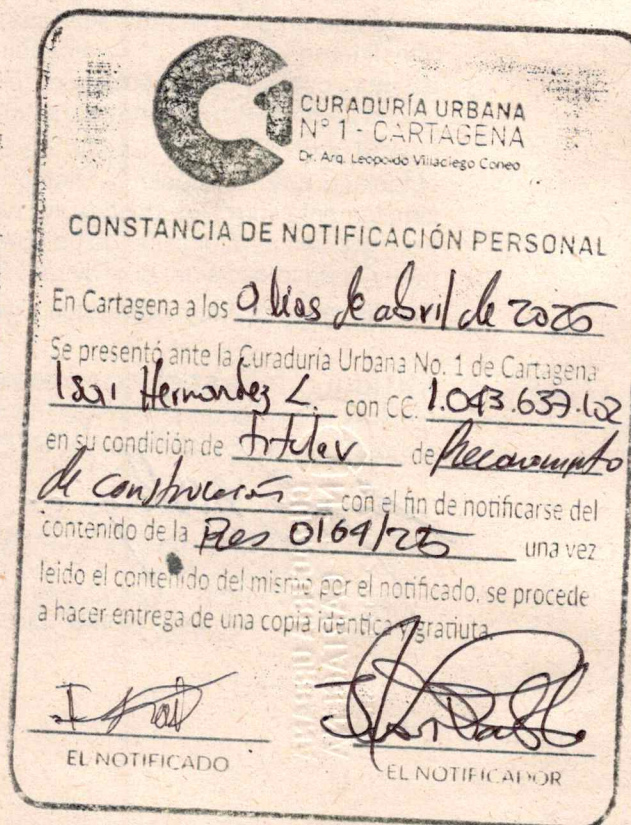 CURADURÍA URBANA
Nº 1 - CARTAGENA
Dr. Arq. Leopoldo Villadiego Coneo
CONSTANCIA DE NOTIFICACIÓN PERSONAL
En Cartagena a los 9 dias de abril de 2025
Se presentó ante la Curaduría Urbana No. 1 de Cartagena
Isai Hernandez L. con CC. 1.043.637.102
en su condición de titular de
de construcción con el fin de notificarse del
contenido de la Res 0164/25 una vez
leido el contenido del mismo por el notificado, se procede
a hacer entrega de una copia identica y gratiuta.
EL NOTIFICADO
EL NOTIFICADOR